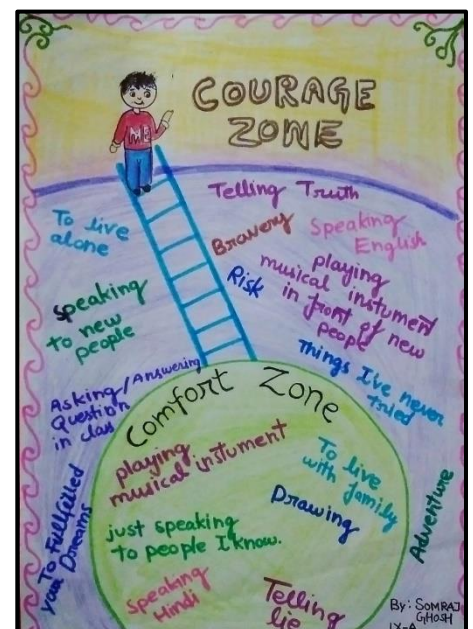 COURAGE
ZONE
ME
Telling Truth
To live
alone
Bravery
Speaking
English
playing
musical instument
in front of new
people
Risk
speaking
to new
people
Things I've never
tried
Asking/Answering
Question
in class
Comfort Zone
playing
musical instument
To live
with family
Drawing
To Fullfilled
your Dreams
just speaking
to people I know.
Adventure
Speaking
Hindi
Telling
lie
By: SOMRAJ
GHOSH
IX-A